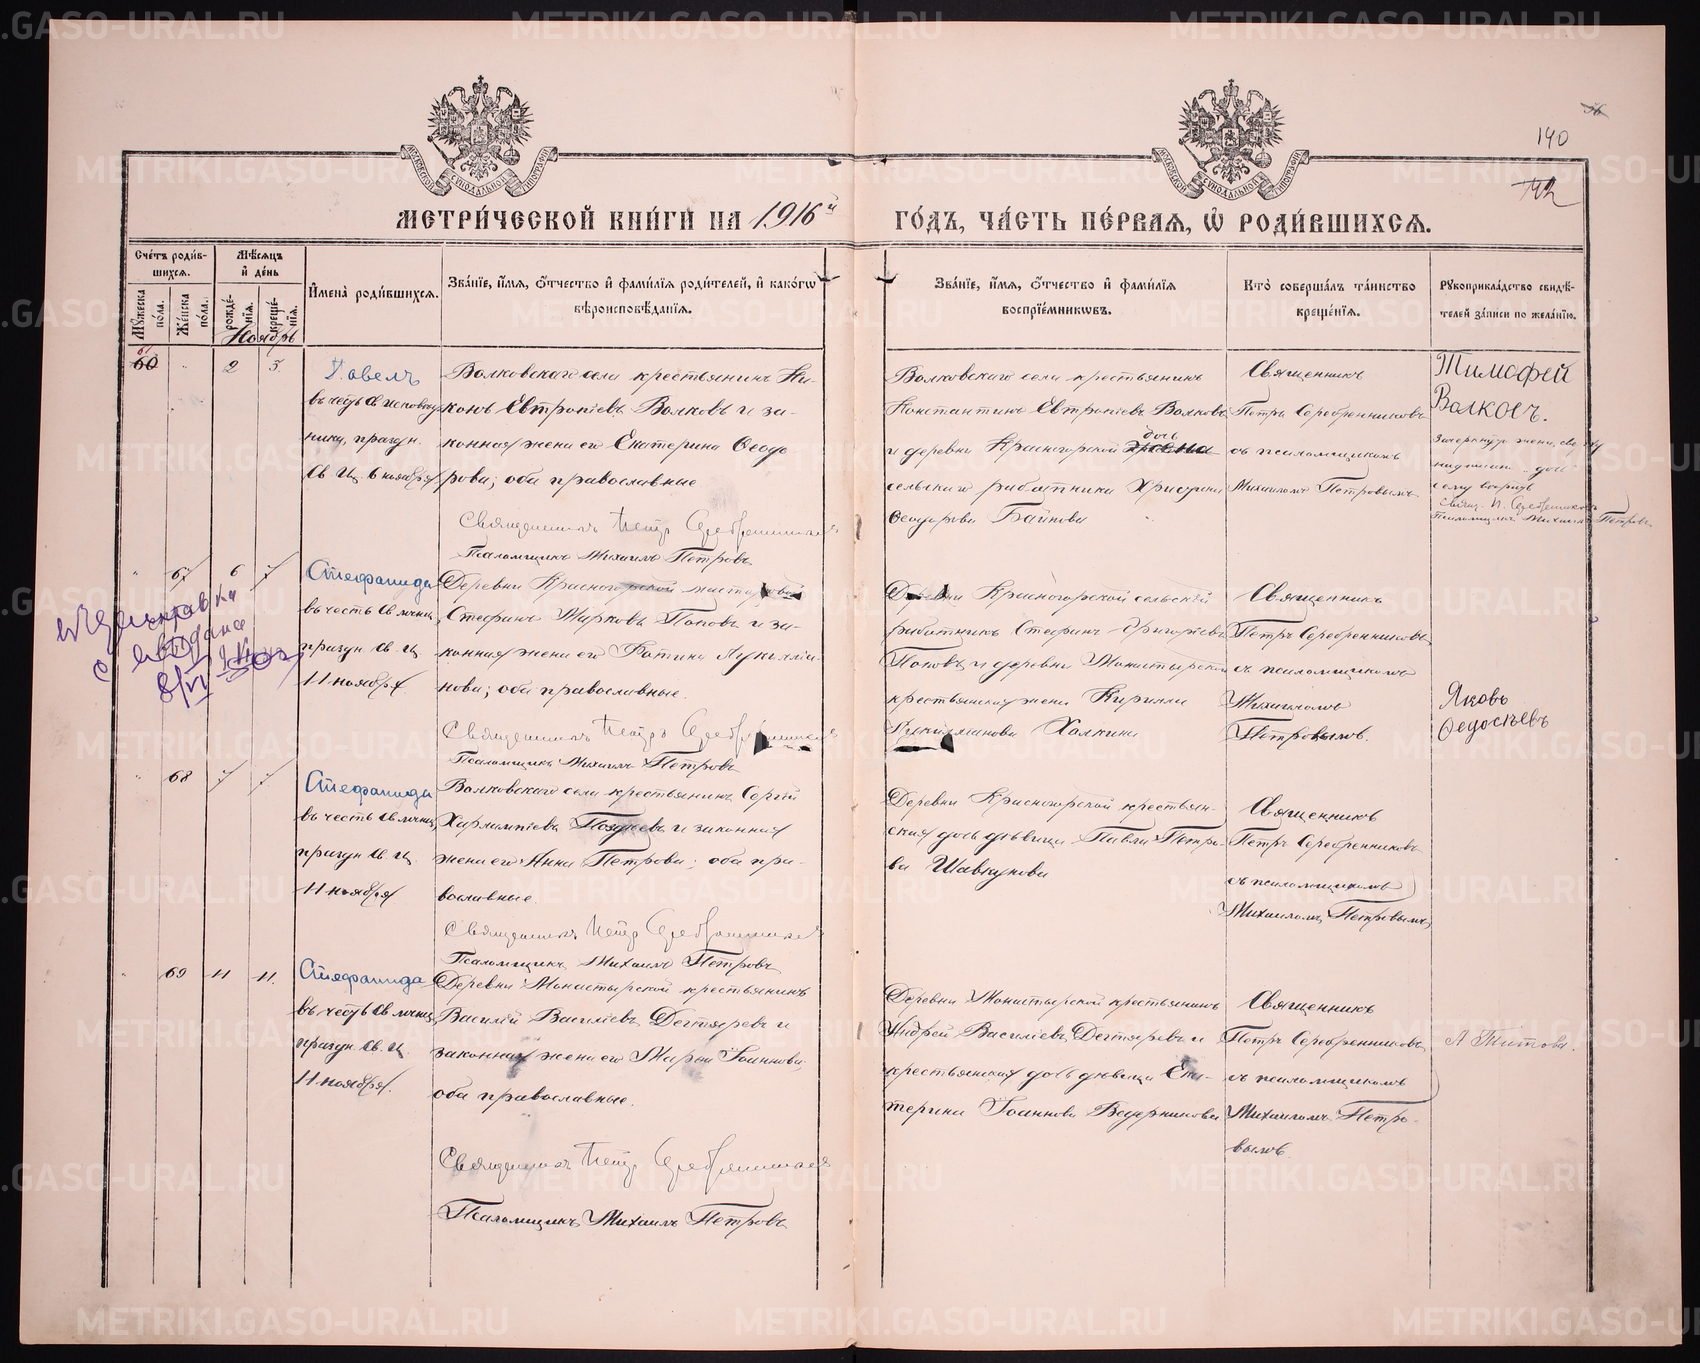 METRIKI.GASO-URAL.RU
190
142
МОСКОВСКОЙ СѴНОДАЛЬНОЙ ТИПОГРАФІИ
МОСКОВСКОЙ СѴНОДАЛЬНОЙ ТИПОГРАФІИ
МЕТРИ́ЧЕСКОЙ КНИ́ГИ НА 1916й ГО́ДЪ, ЧА́СТЬ ПЕ́РВАЯ, Ѽ РОДИ́ВШИХСѦ.
Сче́тъ роди́в-
шихсѧ.
Мꙋ́жеска по́ла.
Же́нска по́ла.
Мѣ́сѧцъ
и҆ де́нь
рожде́-
нїѧ.
креще́-
нїѧ.
Ноябрь
И҆мена̀ роди́вшихсѧ.
Зва́нїе, и҆́мѧ, ѻ҆́тчество и҆ фами́лїѧ роди́телей, и҆ како́гѡ
вѣроисповѣ́данїѧ.
Зва́нїе, и҆́мѧ, ѻ҆́тчество и҆ фами́лїѧ
воспрїе́мникѡвъ.
Кто̀ соверша́лъ та́инство
креще́нїѧ.
Рꙋкоприкла́дство свидѣ́-
телей за́писи по жела́нїю.
60
2
5.
Павелъ
въ честь Св. исповед-
ника, праздн.
Св. Ц. 6 ноября
Волковскаго села крестьянинъ Ни-
конъ Евтропіевъ Волковъ и за-
конная жена его Екатерина Ѳеодо
рова; оба православные
Священникъ Петр Серебренников
Псаломщикъ Михаилъ Петровъ
Волковскаго села крестьянинъ
Константинъ Евтропіевъ Волковъ
и деревни Красногорской дочь жена
сельскаго работника Христина
Ѳеодорова Баинова
Священникъ
Петръ Серебренниковъ
съ псаломщикомъ
Михаиломъ Петровымъ
Тимофей
Волковъ.
Священ. П. Серебренников
Псаломщикъ Михаилъ Петровъ
67
6
7
Стефанида
въ честь Св. мчниц.
праздн. Св. Ц.
11 ноября.
Деревни Красногорской мастеровой
Стефанъ Марковъ Поповъ и за-
конная жена его Фотина Лукьяна-
нова; оба православные.
Священникъ Петръ Серебренников
Псаломщикъ Михаилъ Петровъ
Деревни Красногорской сельскій
работникъ Стефанъ Григоріевъ
Поповъ и деревни Монастырской
крестьянская жена Кирилла
Халкина
Священникъ
Петръ Серебренниковъ
съ псаломщикомъ
Михаиломъ
Петровымъ.
Яковъ
Федосѣевъ
выдана
8/VI
68
7
7
Стефанида
въ честь Св. мчниц.
праздн. Св. Ц.
11 ноября
Волковскаго села крестьянинъ Сергій
Харлампіевъ Поздеевъ и законная
жена его Анна Петрова; оба пра-
вославные
Священникъ Петр Серебренников
Псаломщикъ Михаилъ Петровъ
Деревни Красногорской крестьян-
ская дочь дѣвица Павла Петро-
ва Шавкунова
Священникъ
Петръ Серебренниковъ
съ псаломщикомъ
Михаиломъ Петровымъ
69
11
11.
Стефанида
въ честь Св. мчниц.
праздн. Св. Ц.
11 ноября.
Деревни Монастырской крестьянинъ
Василій Василіевъ Дегтяревъ и
законная жена его Марфа Іоаннова,
оба православные.
Священникъ Петр Серебренников
Псаломщикъ Михаилъ Петровъ
Деревни Монастырской крестьянинъ
Андрей Василіевъ Дегтяревъ и
крестьянская дочь дѣвица Ека-
терина Іоаннова Ведерникова
Священникъ
Петръ Серебренниковъ
съ псаломщикомъ
Михаиломъ Петро-
вымъ.
А Титова.